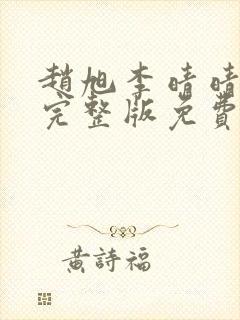 趙旭李晴晴
完整版免費
黃詩福